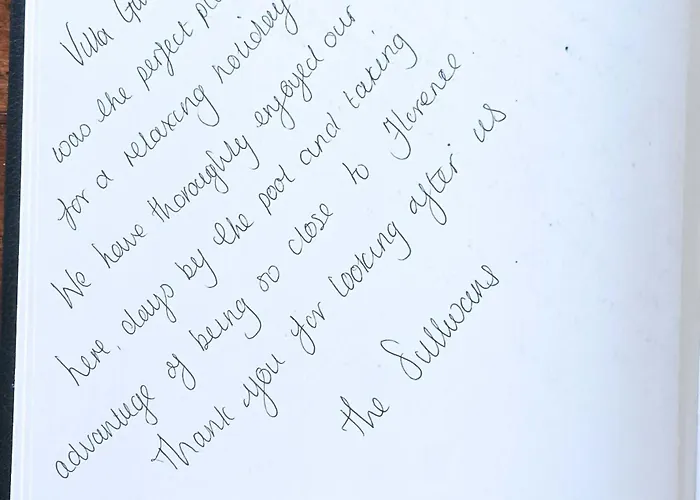 Villa
was the perfect
for a relaxing holiday
We have thoroughly enjoyed our
here, days by the pool and taking
advantage of being so close to Florence.
Thank you for looking after us.
the Sullivans.